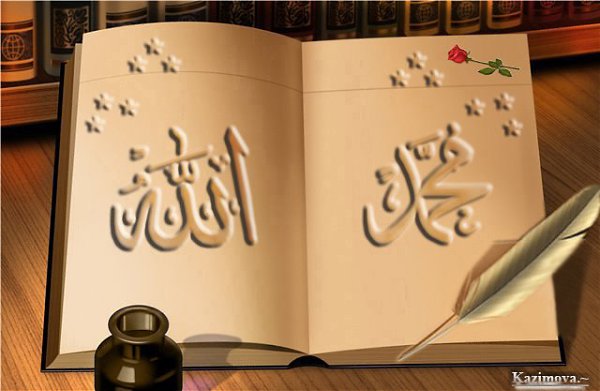 محمد
الله
Kazimova.~